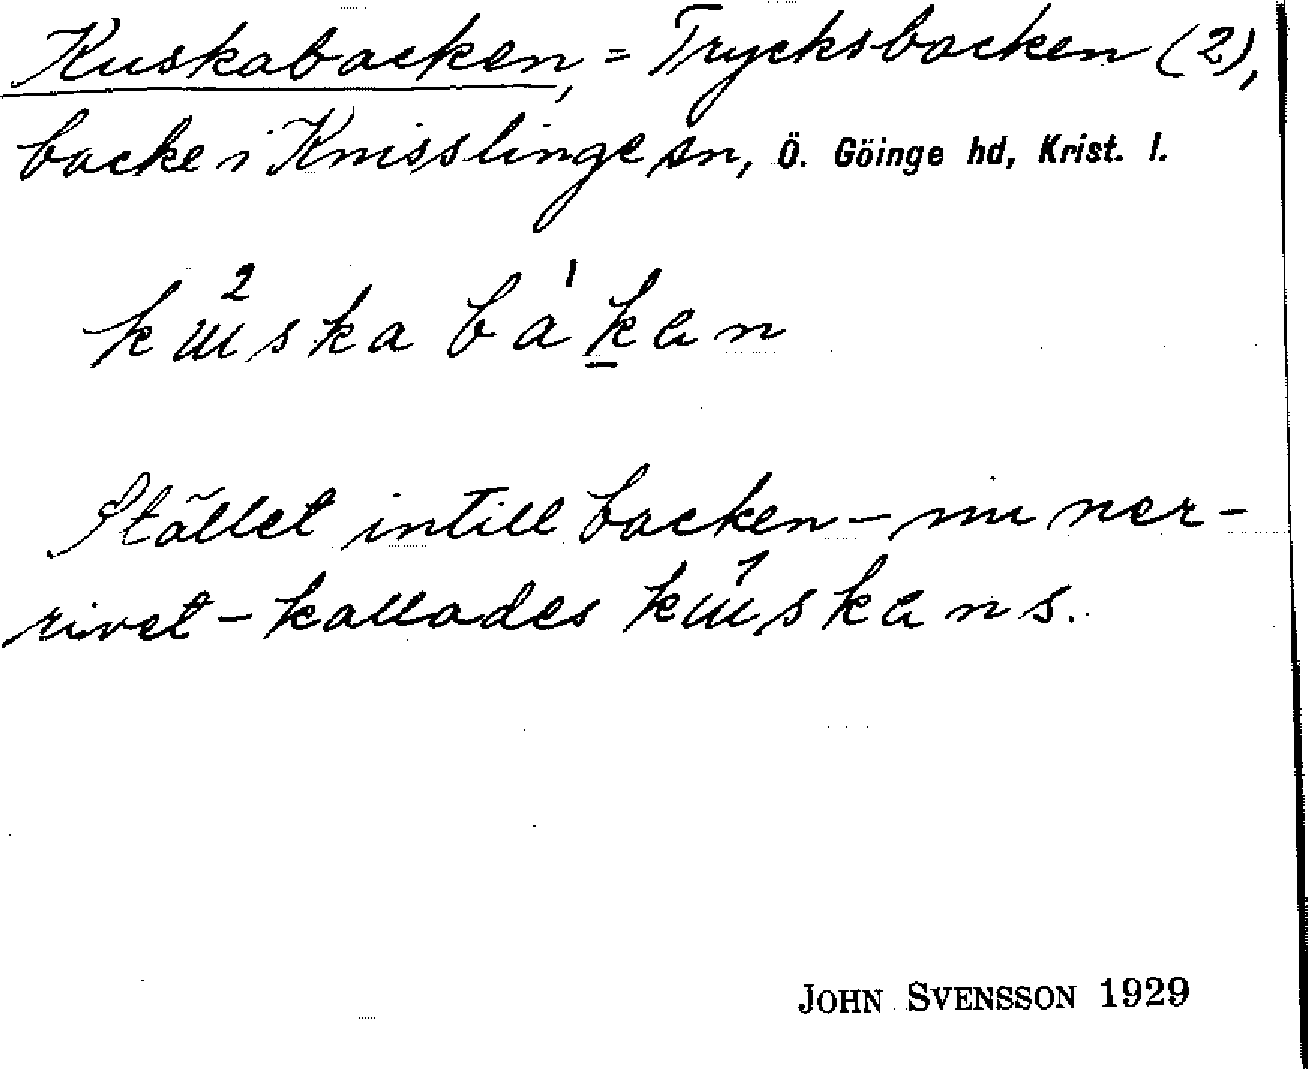 Kuskabacken, = Trycksbacken (2),
backe i Knisslinge sn, Ö. Göinge hd, Krist. l.
kɯ²ska ba¹k̲en
Stället intill backen – nu ner-
rivet – kallades kɯ¹skens.
JOHN SVENSSON 1929